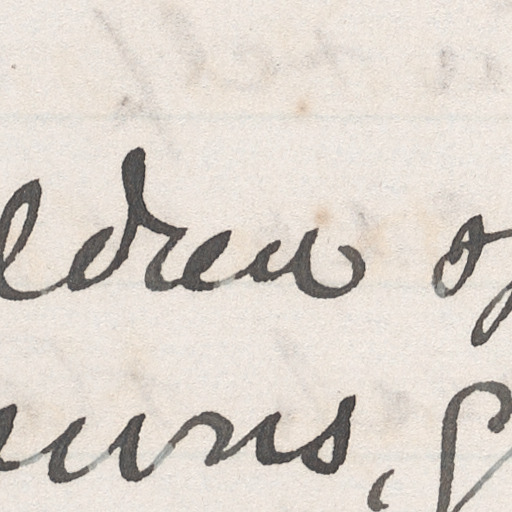 ldren of
urns,